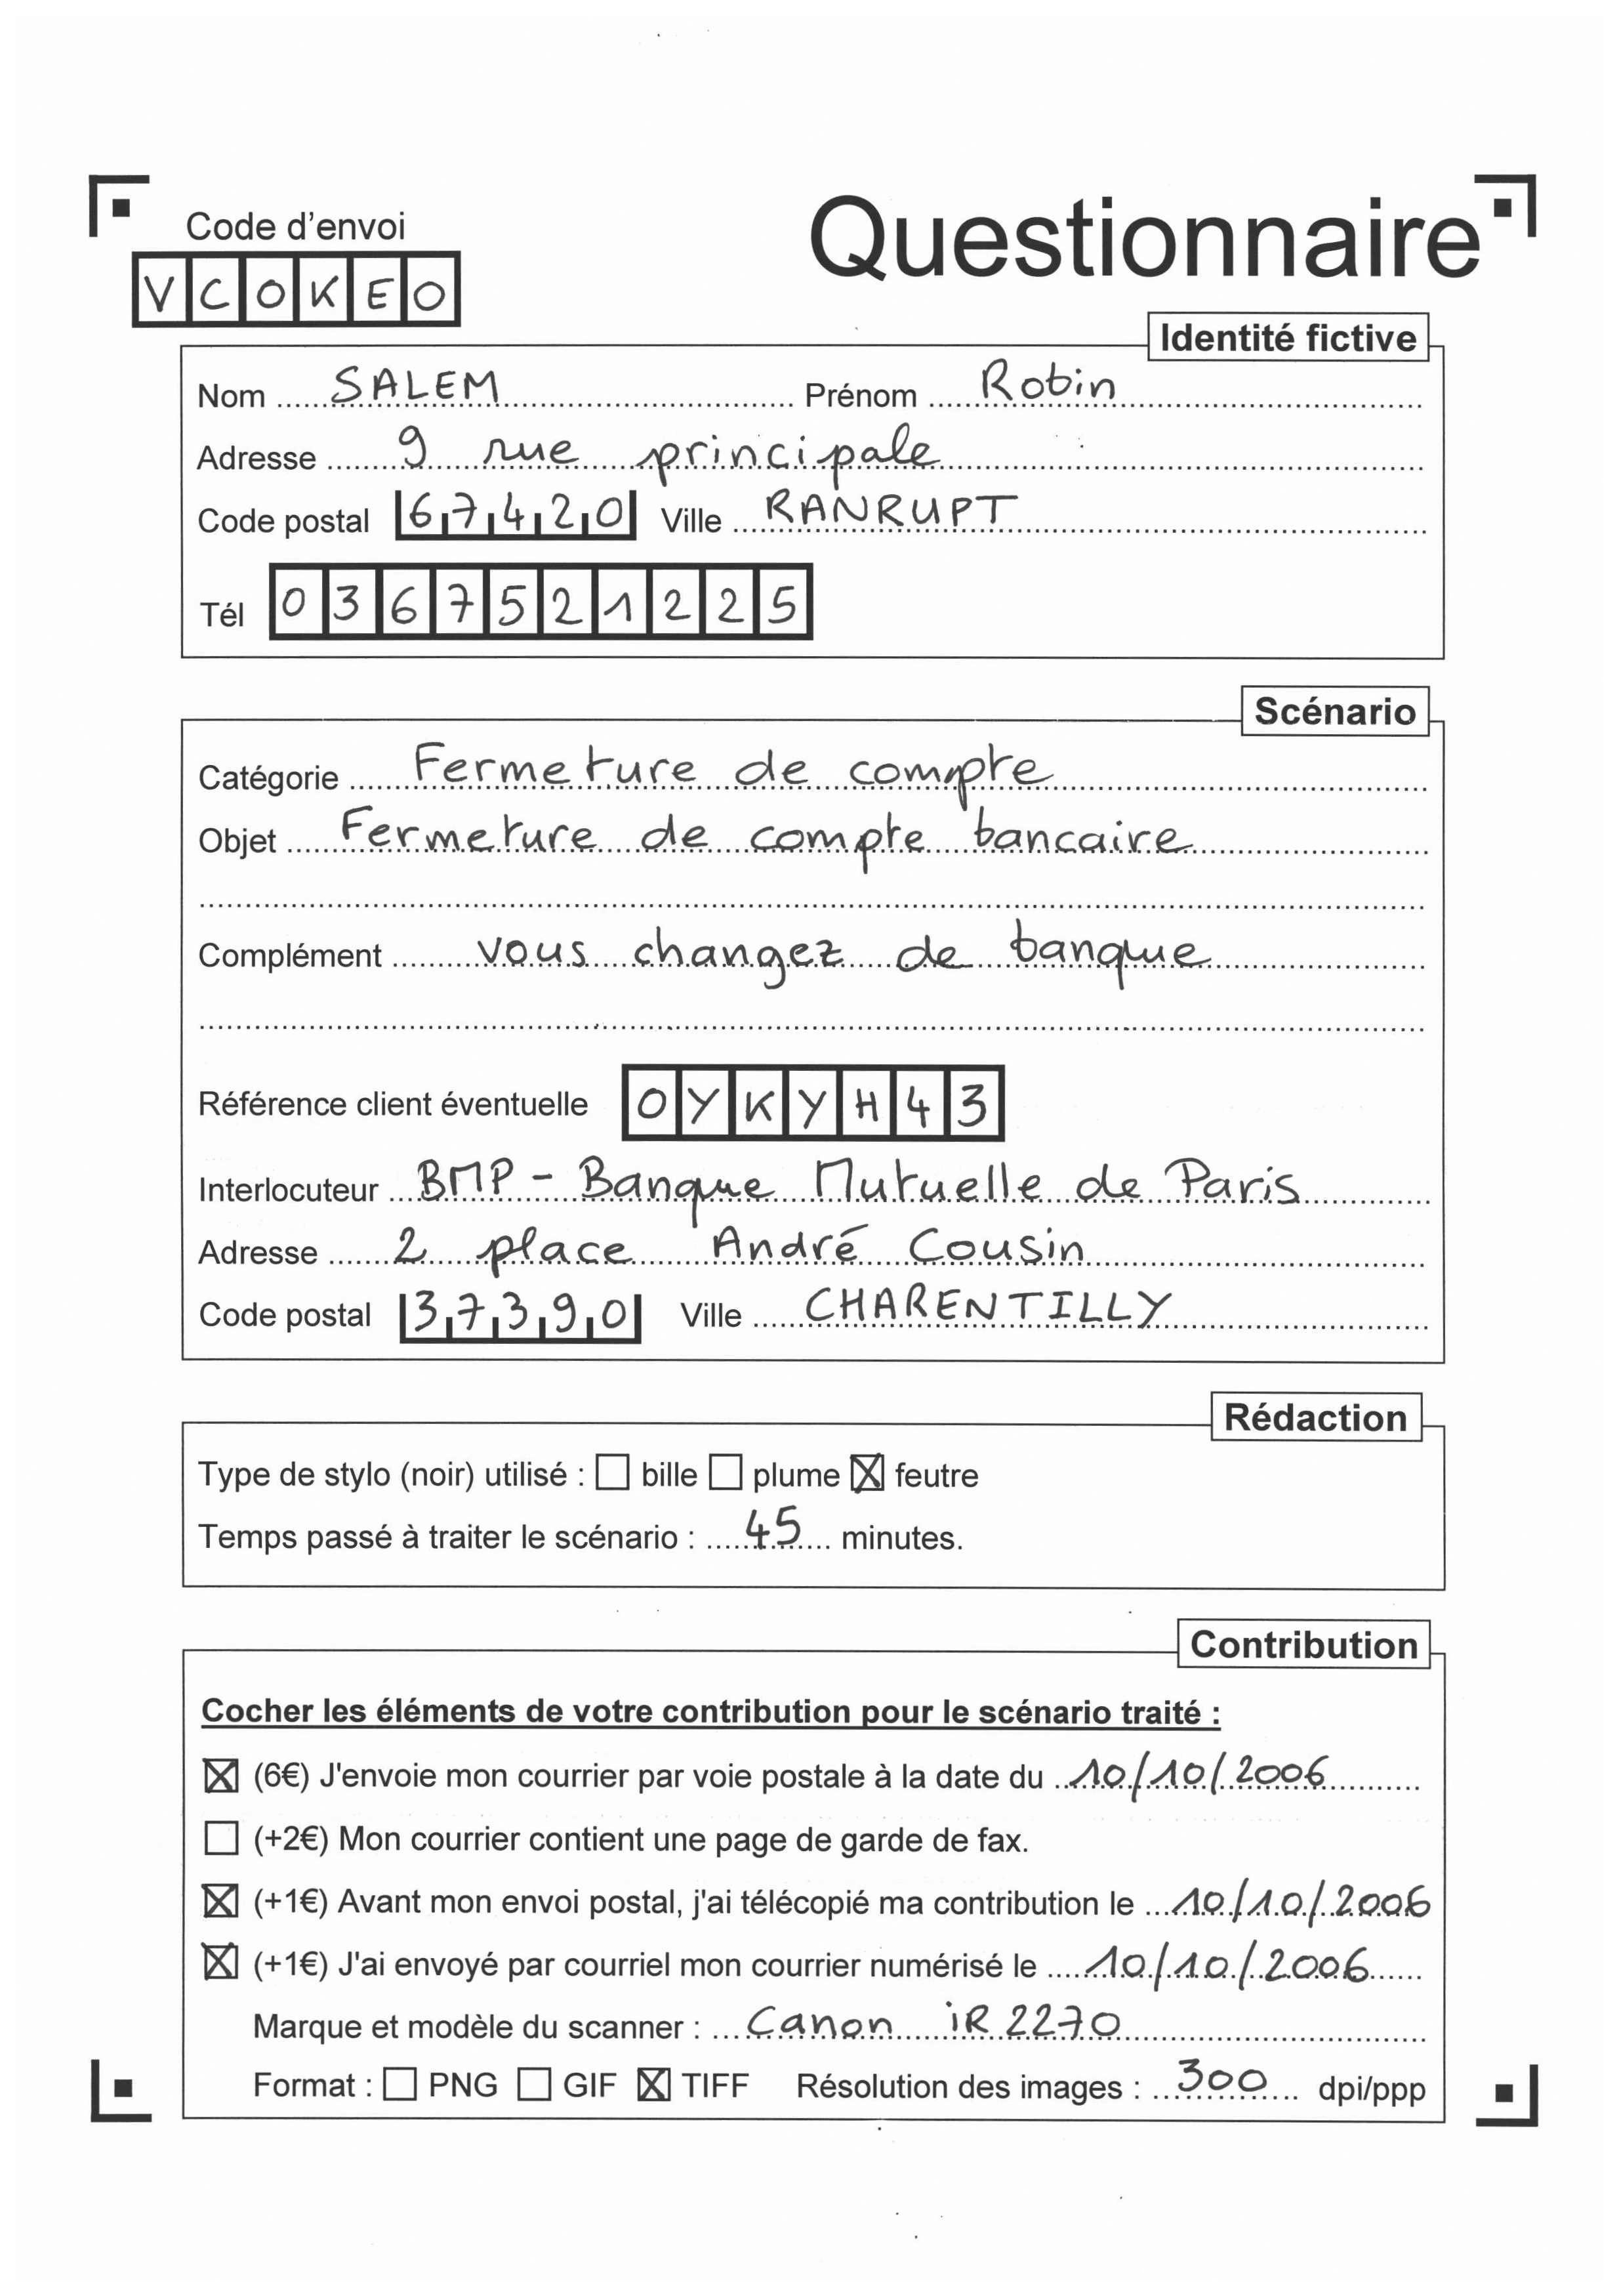 Code d'envoi
Questionnaire
VCOKEO
Identité fictive
Nom SALEM Prénom Robin
Adresse 9 rue principale
Code postal 67420 Ville RANRUPT
Tél 0367521225
Scénario
Catégorie Fermeture de compte
Objet Fermeture de compte bancaire
Complément vous changez de banque
Référence client éventuelle OYKYH43
Interlocuteur BMP - Banque Mutuelle de Paris
Adresse 2 place André Cousin
Code postal 37390 Ville CHARENTILLY
Rédaction
Type de stylo (noir) utilisé : ☐ bille ☐ plume ☒ feutre
Temps passé à traiter le scénario : 45 minutes.
Contribution
Cocher les éléments de votre contribution pour le scénario traité :
☒ (6€) J'envoie mon courrier par voie postale à la date du 10/10/2006
☐ (+2€) Mon courrier contient une page de garde de fax.
☒ (+1€) Avant mon envoi postal, j'ai télécopié ma contribution le 10/10/2006
☒ (+1€) J'ai envoyé par courriel mon courrier numérisé le 10/10/2006
Marque et modèle du scanner : Canon iR 2270
Format : ☐ PNG ☐ GIF ☒ TIFF Résolution des images : 300 dpi/ppp